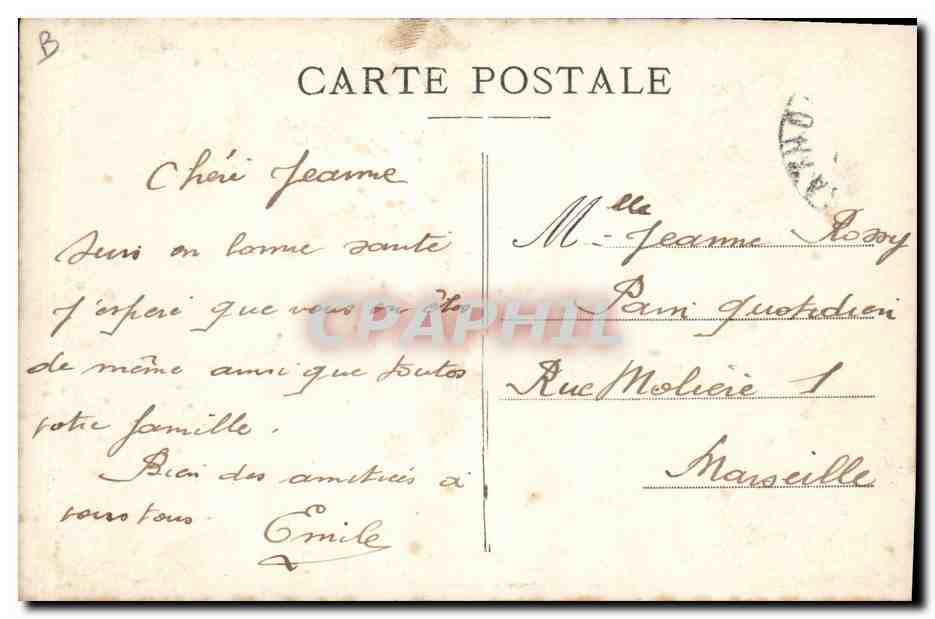 B
CARTE POSTALE
Chéri Jeanne
suis en bonne santé
j'espere que vous en êtes
de même ainsi que toutes
votre famille.
Bien des amitiées à
vous tous
Emile
Mlle Jeanne Rossy
Pain quotidien
Rue Moliere 1
Marseille
CPAPHIL